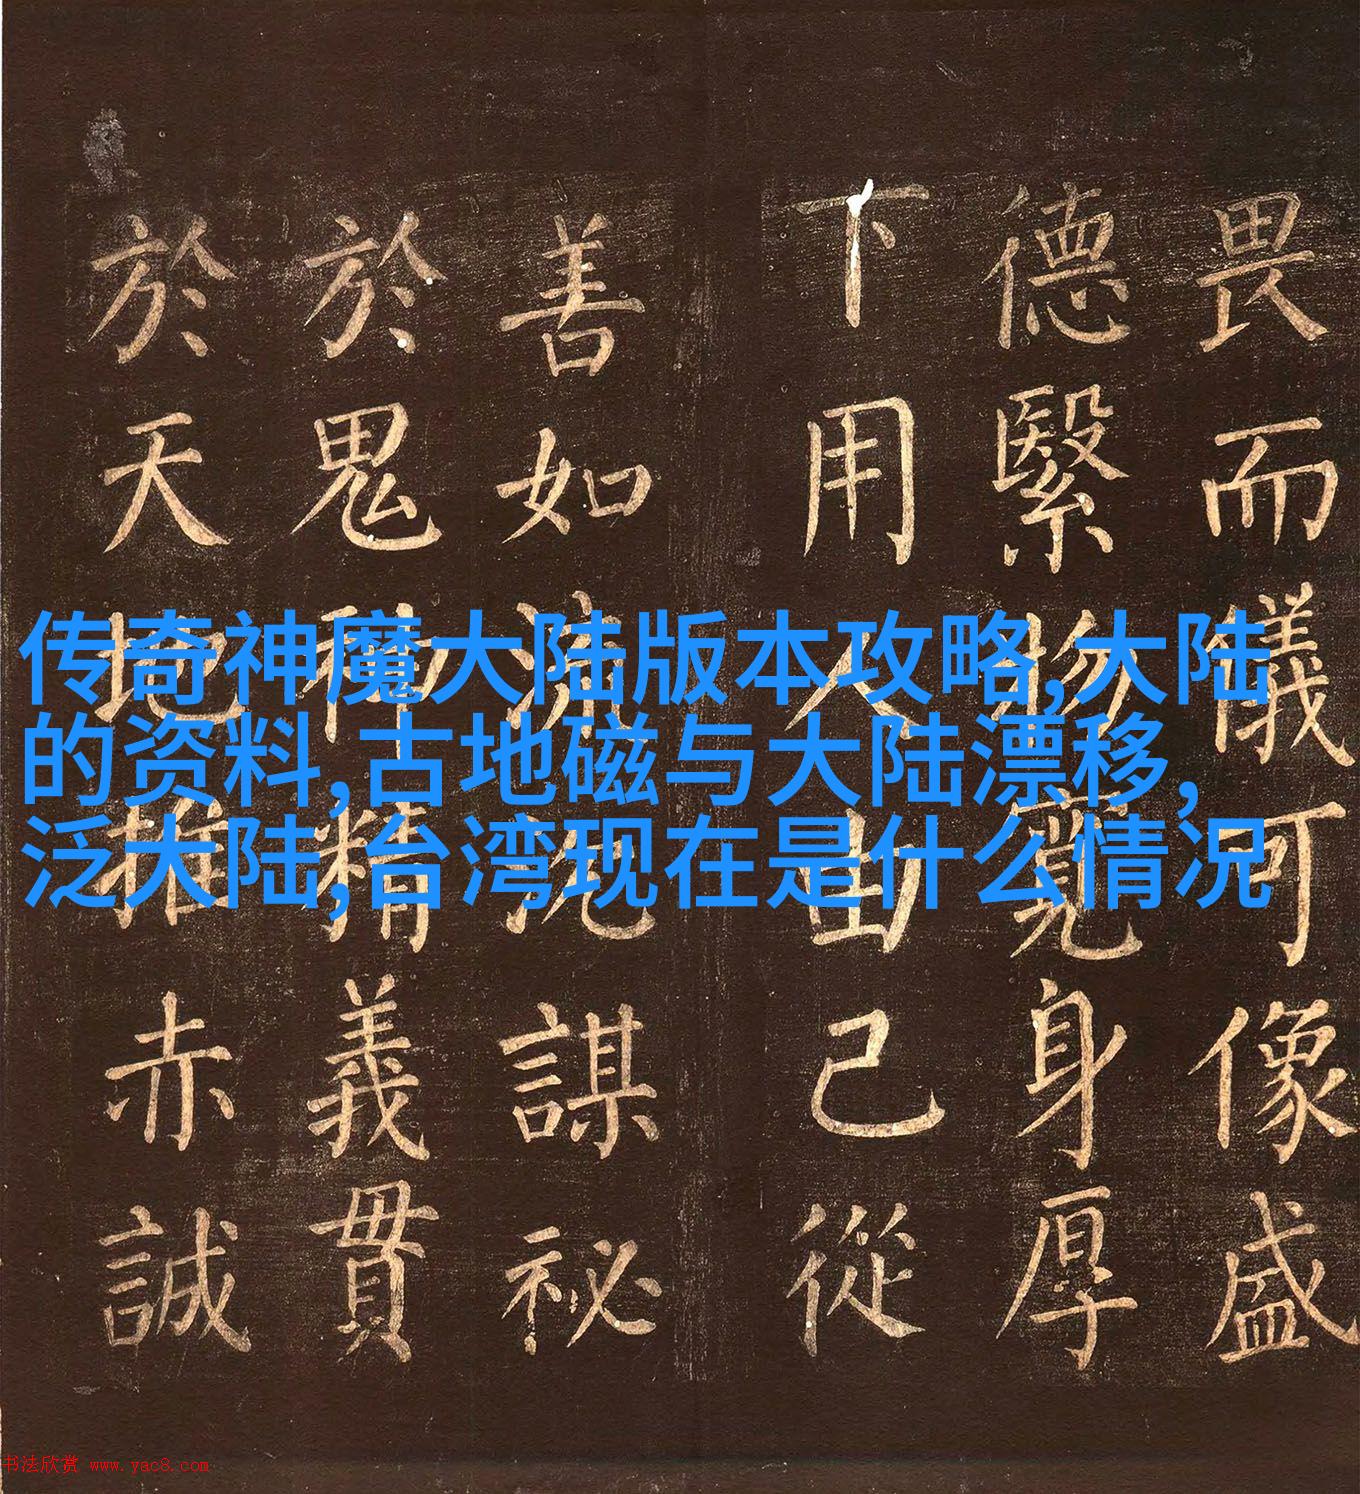 畏而儀可像盛
德繄物寬身厚
下用人由己從
善如流沉謀祕
於鬼神精義貫
於天地推赤誠
传奇神魔大陆版本攻略,大陆
的资料,古地磁与大陆漂移,
泛大陆,台湾现在是什么情况
书法欣赏 www.yac8.com